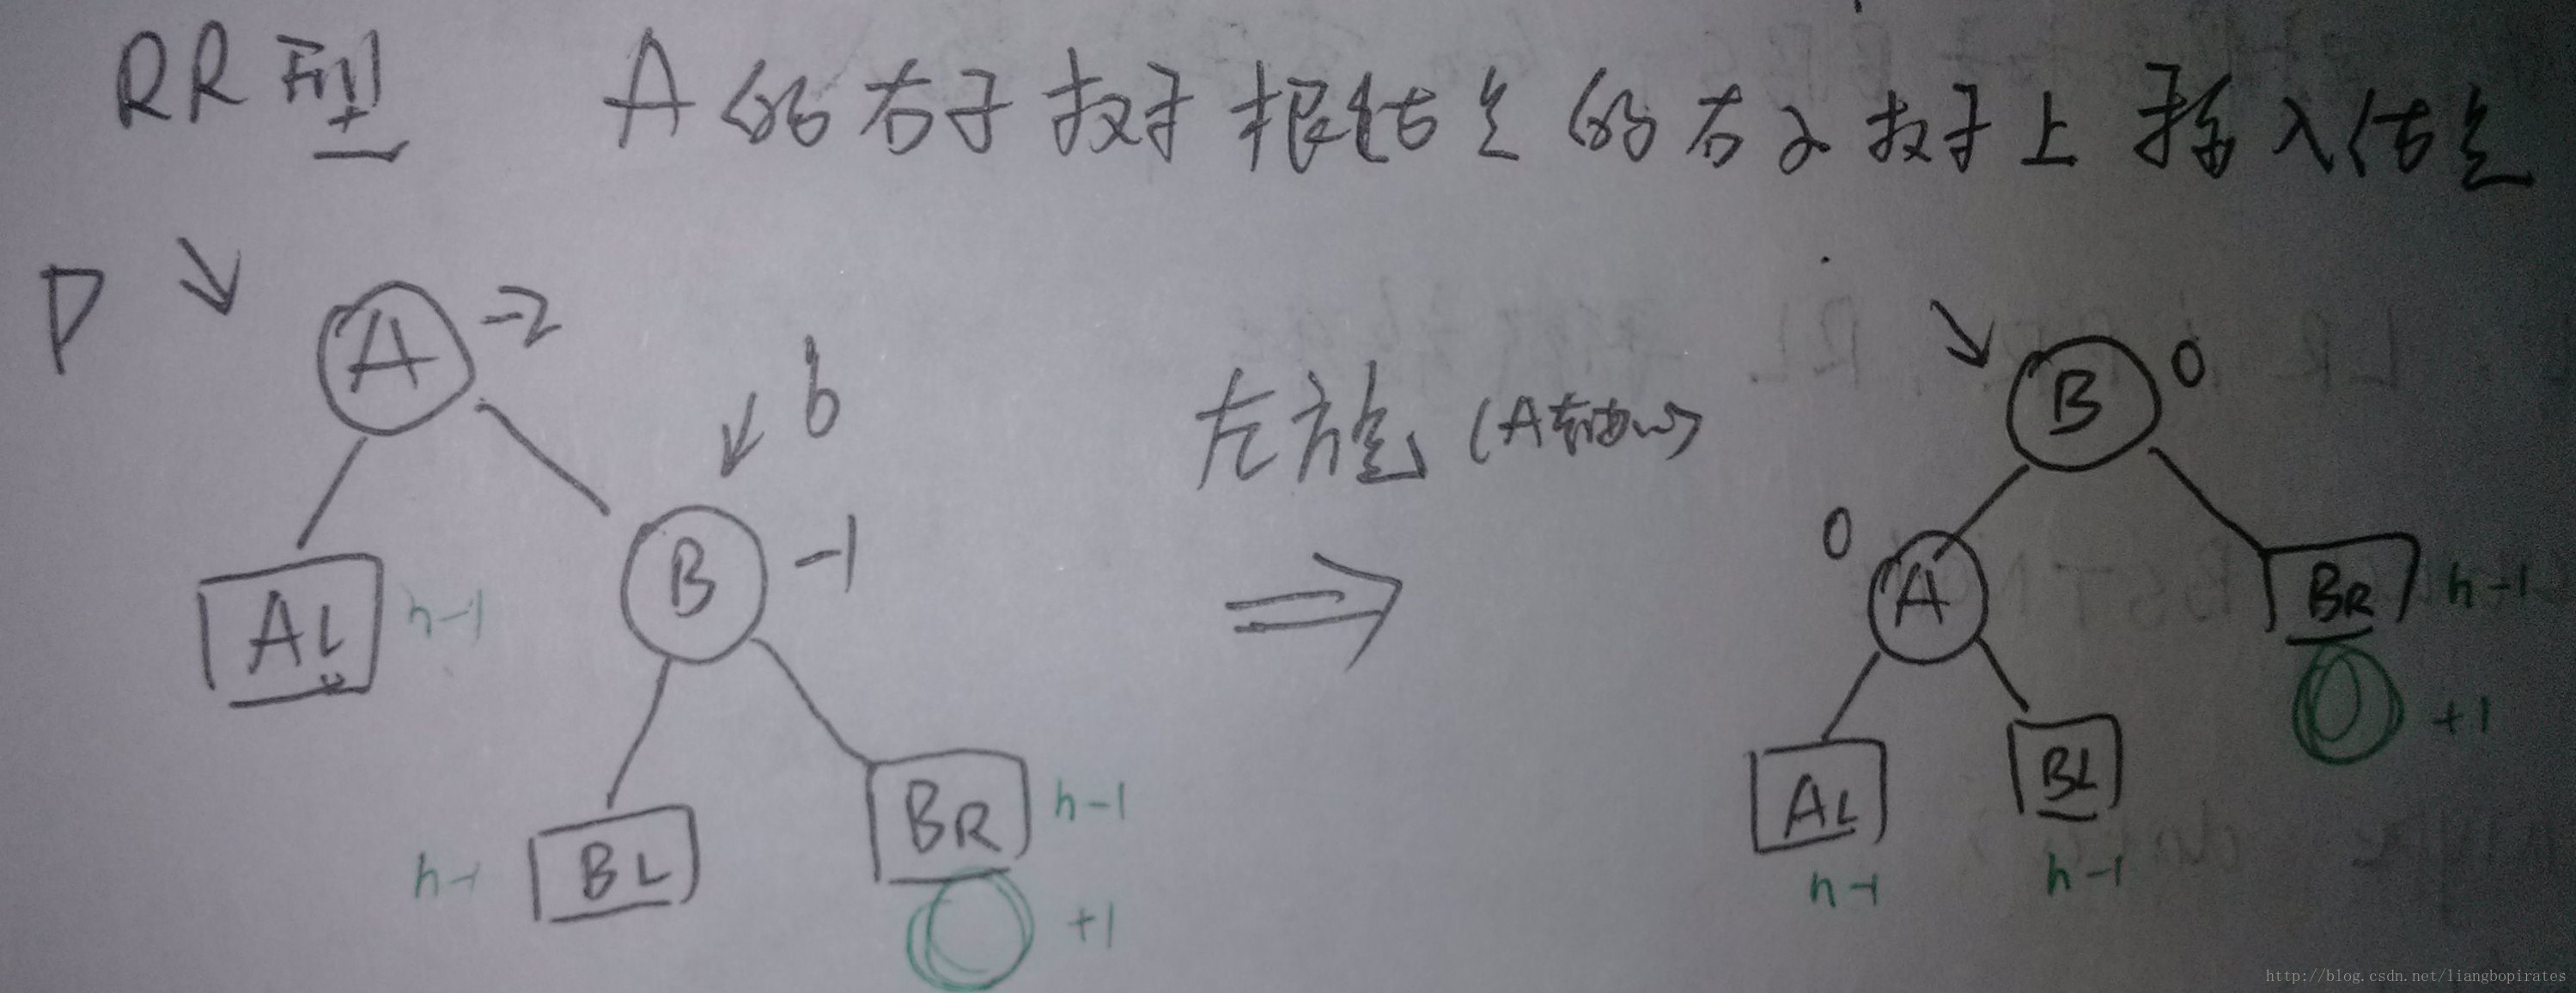 RR型 A的右子树根结点的右子树上插入结点
P
A -2
b
B -1
AL h-1
BL h-1
BR h-1
+1
左旋 (A轴心)
B 0
0 A
BR h-1
+1
AL h-1
BL h-1
http://blog.csdn.net/liangbopirates